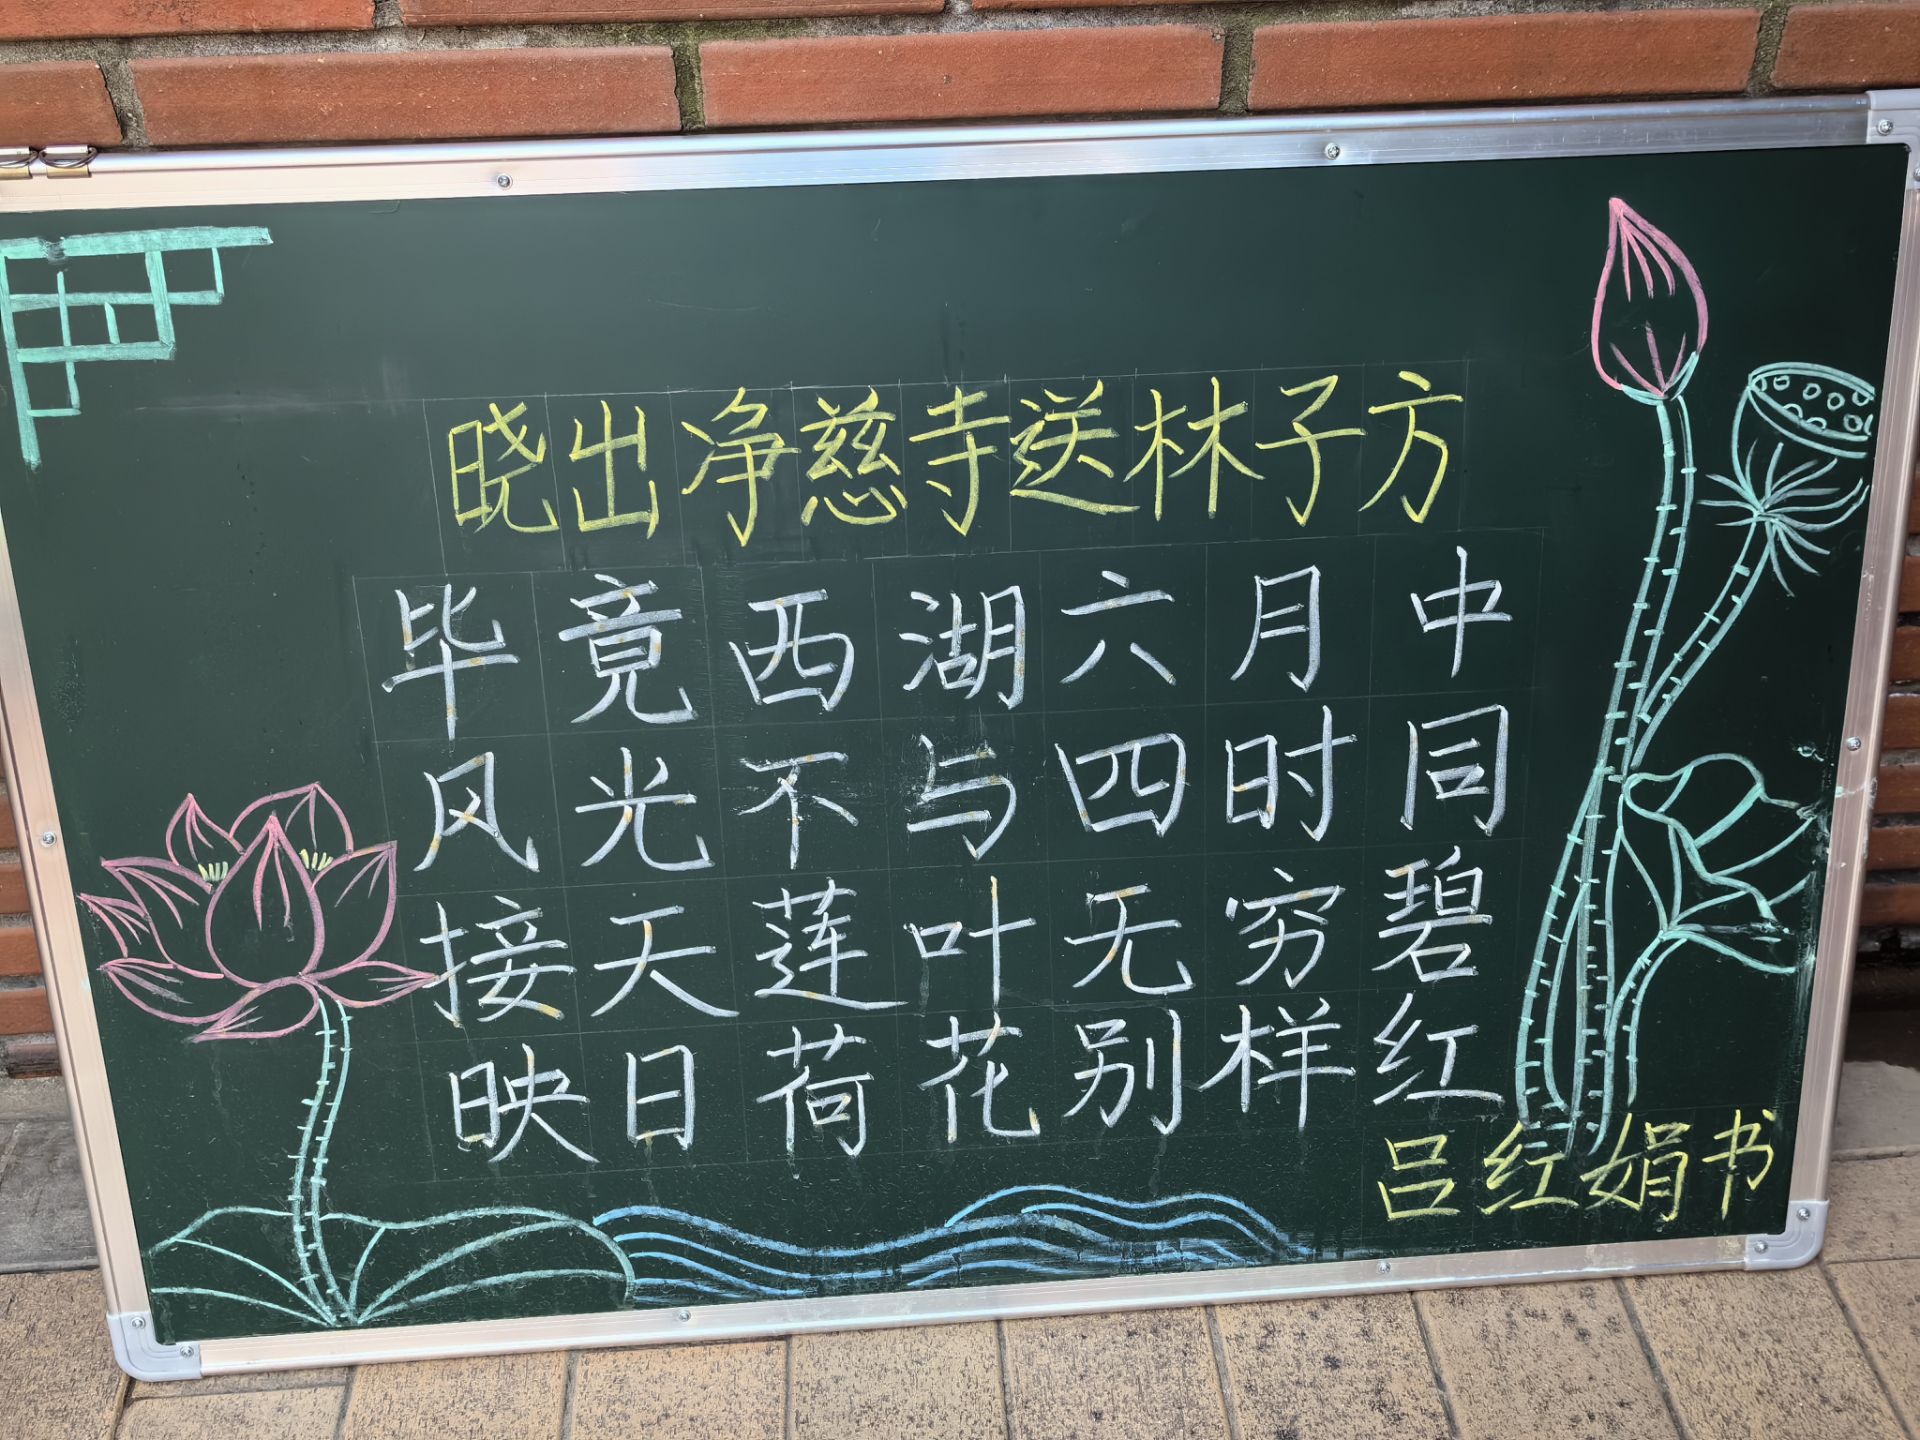 晓出净慈寺送林子方
毕竟西湖六月中
风光不与四时同
接天莲叶无穷碧
映日荷花别样红
吕红娟书